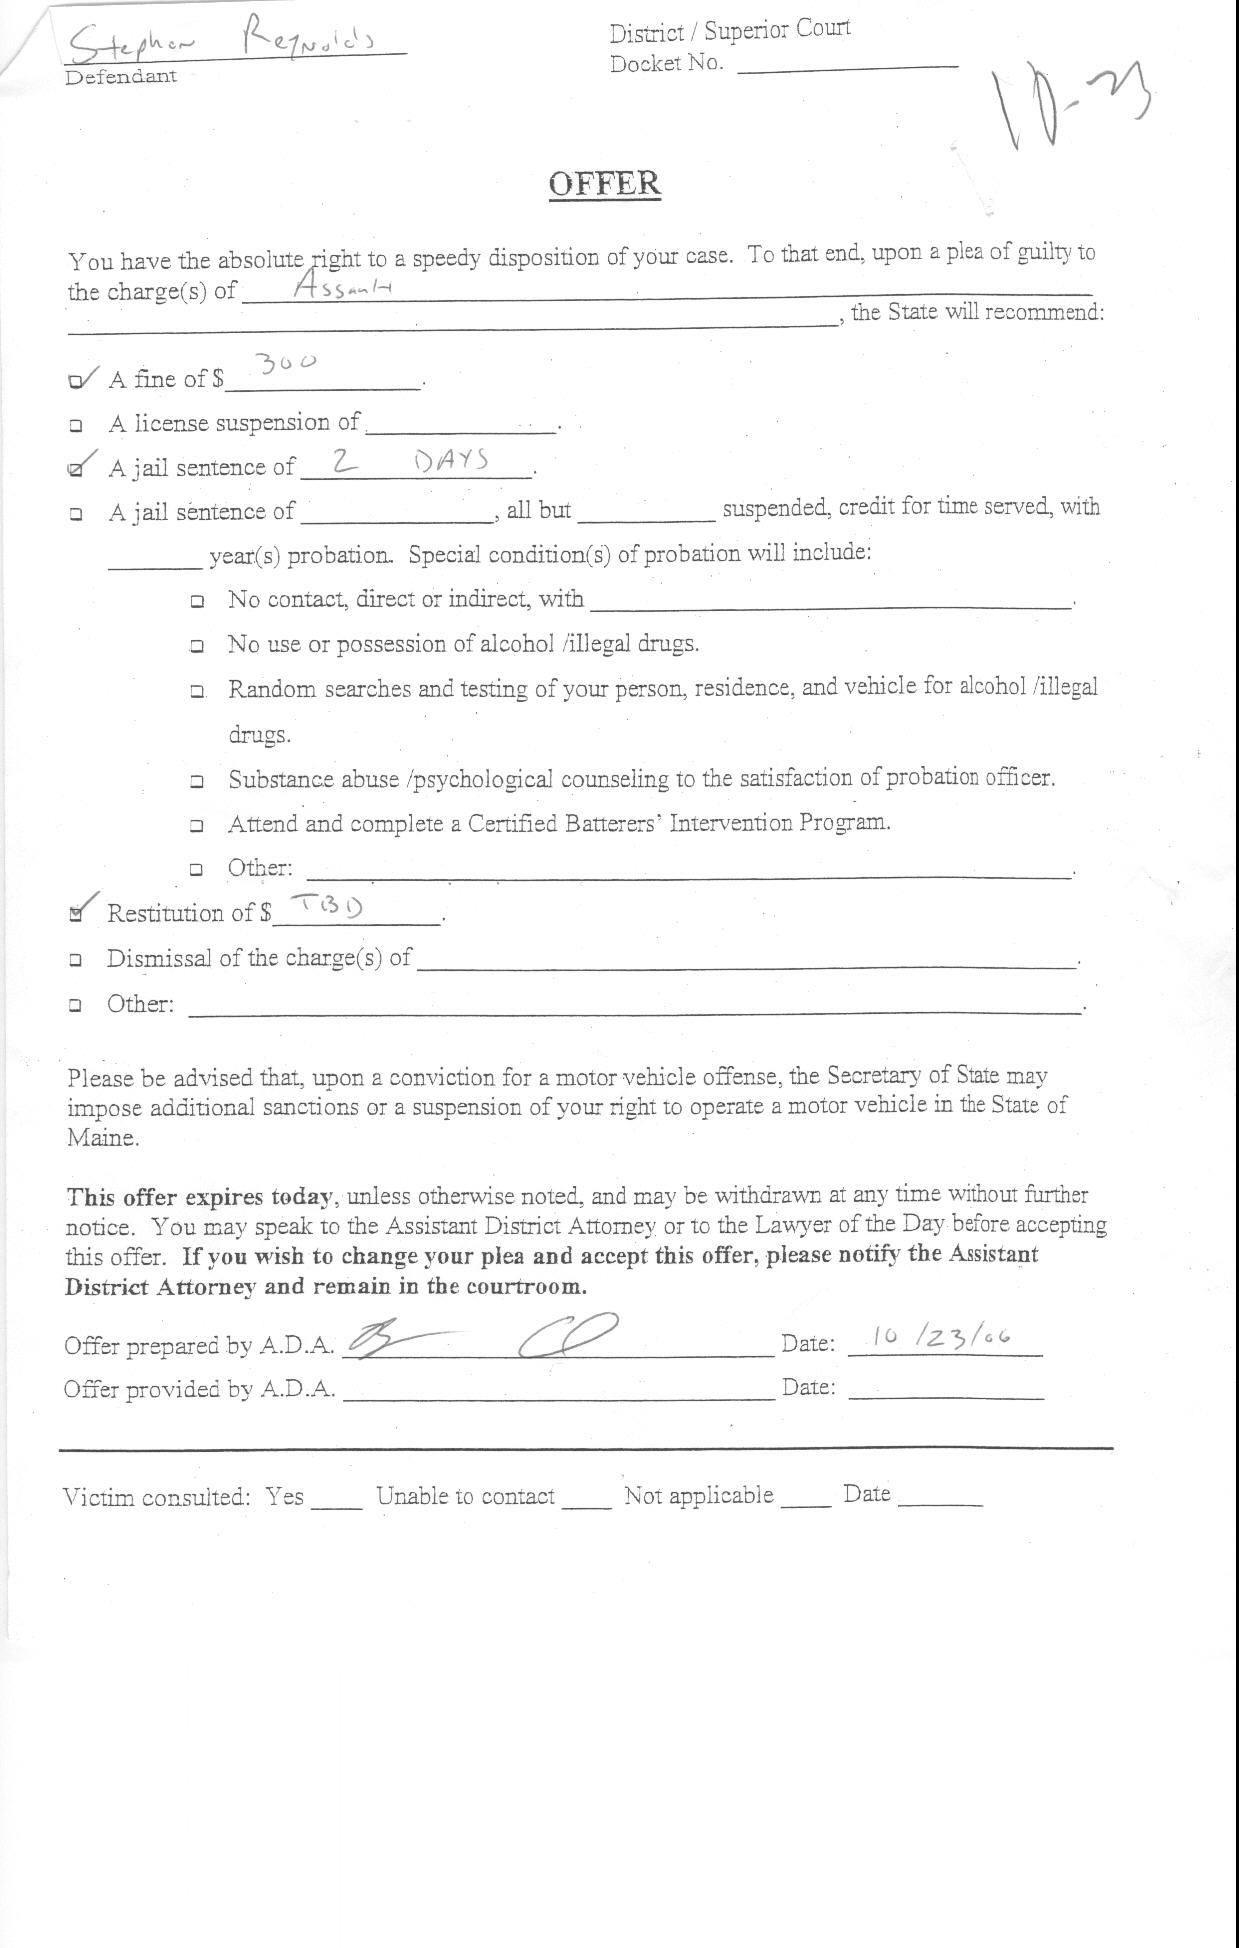 Stephen Reynolds
Defendant
District / Superior Court
Docket No.
10-23
OFFER
You have the absolute right to a speedy disposition of your case. To that end, upon a plea of guilty to
the charge(s) of Assault
, the State will recommend:
A fine of $ 300.
A license suspension of .
A jail sentence of 2 DAYS.
A jail sentence of , all but suspended, credit for time served, with
year(s) probation. Special condition(s) of probation will include:
No contact, direct or indirect, with .
No use or possession of alcohol /illegal drugs.
Random searches and testing of your person, residence, and vehicle for alcohol /illegal
drugs.
Substance abuse /psychological counseling to the satisfaction of probation officer.
Attend and complete a Certified Batterers' Intervention Program.
Other: .
Restitution of $ TBD.
Dismissal of the charge(s) of .
Other: .
Please be advised that, upon a conviction for a motor vehicle offense, the Secretary of State may
impose additional sanctions or a suspension of your right to operate a motor vehicle in the State of
Maine.
This offer expires today, unless otherwise noted, and may be withdrawn at any time without further
notice. You may speak to the Assistant District Attorney or to the Lawyer of the Day before accepting
this offer. If you wish to change your plea and accept this offer, please notify the Assistant
District Attorney and remain in the courtroom.
Offer prepared by A.D.A. Date: 10/23/06
Offer provided by A.D.A. Date:
Victim consulted: Yes Unable to contact Not applicable Date